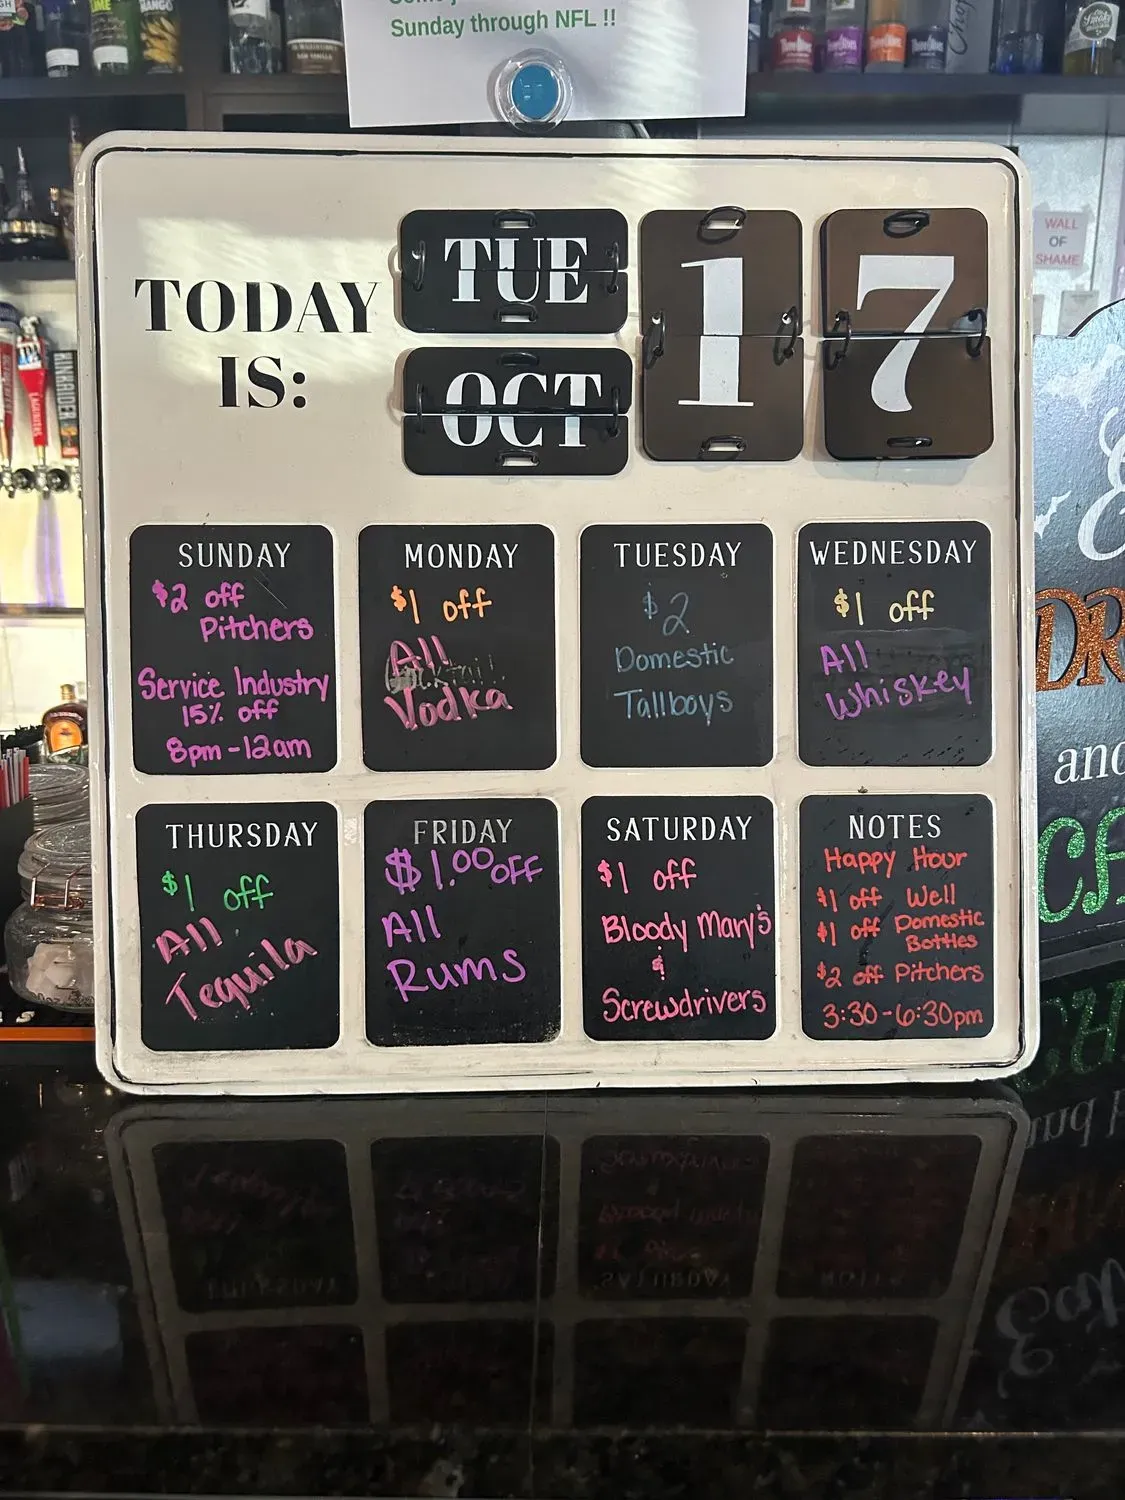 Sunday through NFL !!
WALL
OF
SHAME
TODAY
IS:
TUE
OCT
1 7
SUNDAY
$2 off
Pitchers
Service Industry
15% off
8pm-12am
MONDAY
$1 off
All
Vodka
TUESDAY
$2
Domestic
Tallboys
WEDNESDAY
$1 off
All
Whiskey
THURSDAY
$1 off
All
Tequila
FRIDAY
$1.00 OFF
All
Rums
SATURDAY
$1 off
Bloody Mary's
&
Screwdrivers
NOTES
Happy Hour
$1 off Well
$1 off Domestic
Bottles
$2 off Pitchers
3:30-6:30pm
and